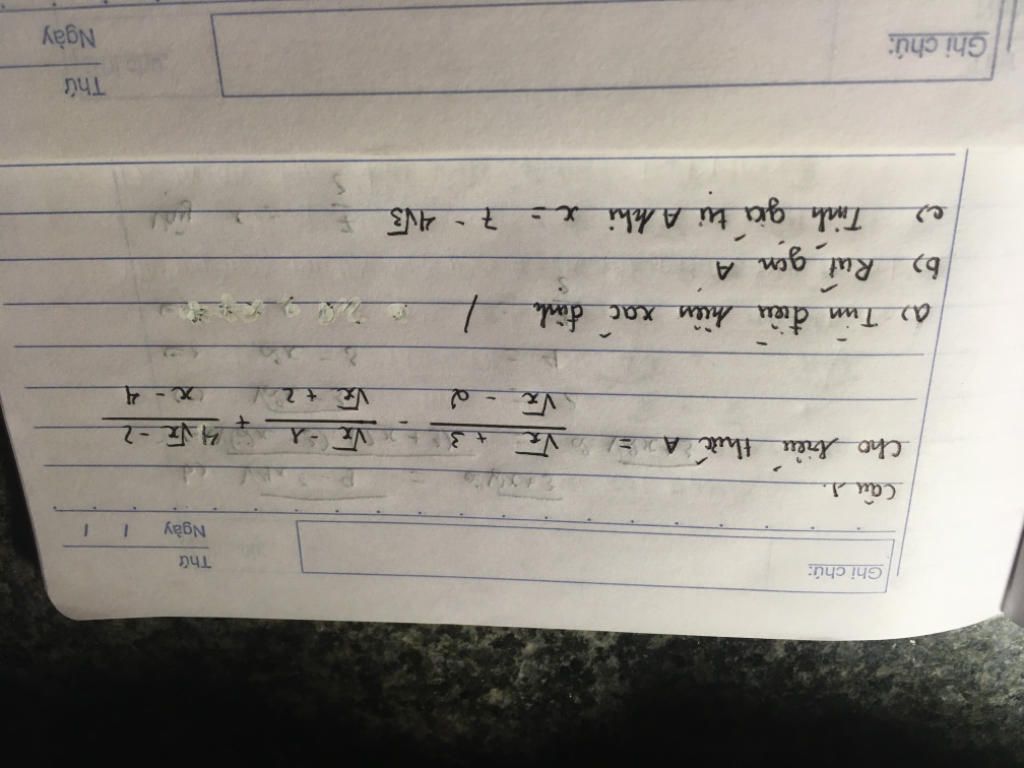 Ghi chú:
Thứ
Ngày / /
Câu 1.
Cho biểu thức A = (√x + 3)/(√x - 2) - (√x - 1)/(√x + 2) + (4√x - 2)/(x - 4)
a) Tìm điều kiện xác định /
b) Rút gọn A
c) Tính giá trị A khi x = 7 - 4√3
Ghi chú:
Thứ
Ngày